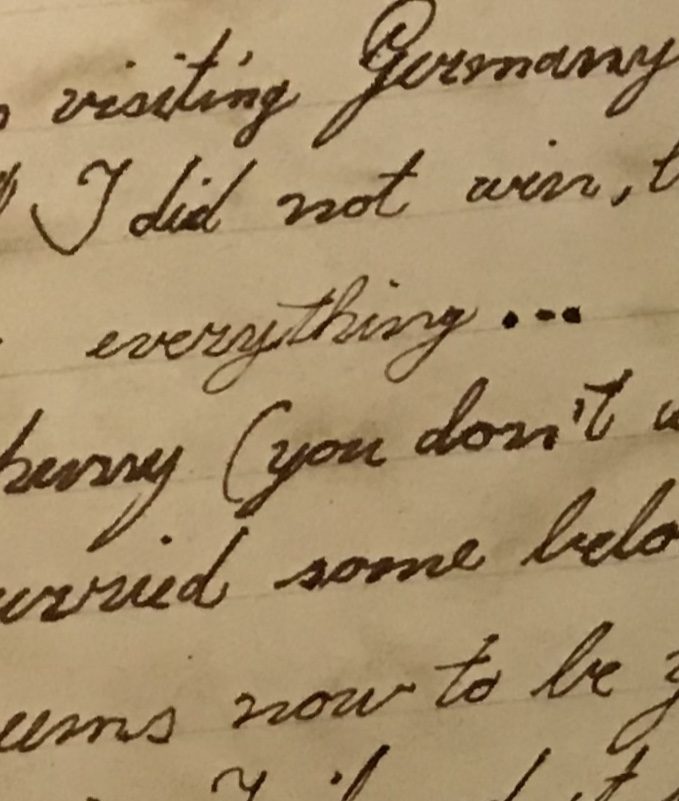 visiting Germany
I did not win, t
everything...
hurry (you don't w
urried some belo
eems now to be y